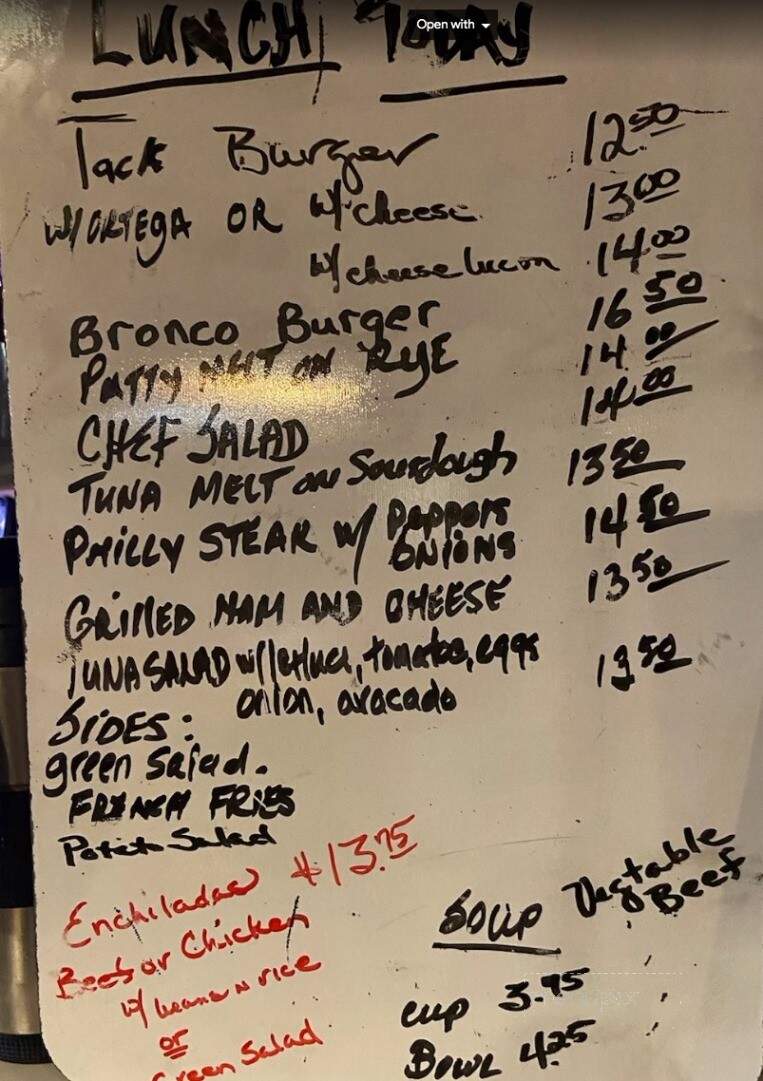 Open with
LUNCH TODAY
Tack Burger 12.50
W/ ORTEGA OR w/ cheese 13.00
w/ cheese bacon 14.00
Bronco Burger 16.50
PATTY MELT ON RYE 14.00
CHEF SALAD 14.00
TUNA MELT on Sourdough 13.50
PHILLY STEAK W/ Peppers 14.50
ONIONS
GRILLED HAM AND CHEESE 13.50
TUNA SALAD w/ lettuce, tomatoe, eggs 13.50
onion, avacado
SIDES:
green salad.
FRENCH FRIES
Potato Salad
Enchiladas $13.75
Beef or Chicken
w/ beans n rice
or
Green Salad
SOUP Vegtable
Beef
cup 3.95
BOWL 4.25